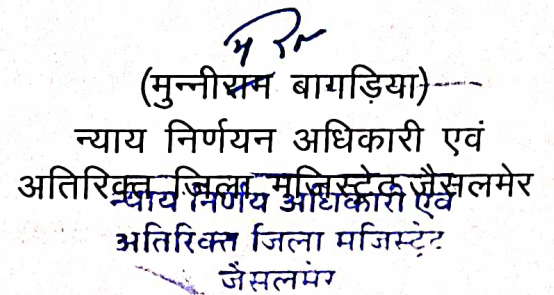 (मुन्नीराम बागड़िया)
न्याय निर्णयन अधिकारी एवं
अतिरिक्त जिला मजिस्ट्रेट जैसलमेर
न्याय निर्णय अधिकारी एवं
अतिरिक्त जिला मजिस्ट्रेट
जैसलमेर